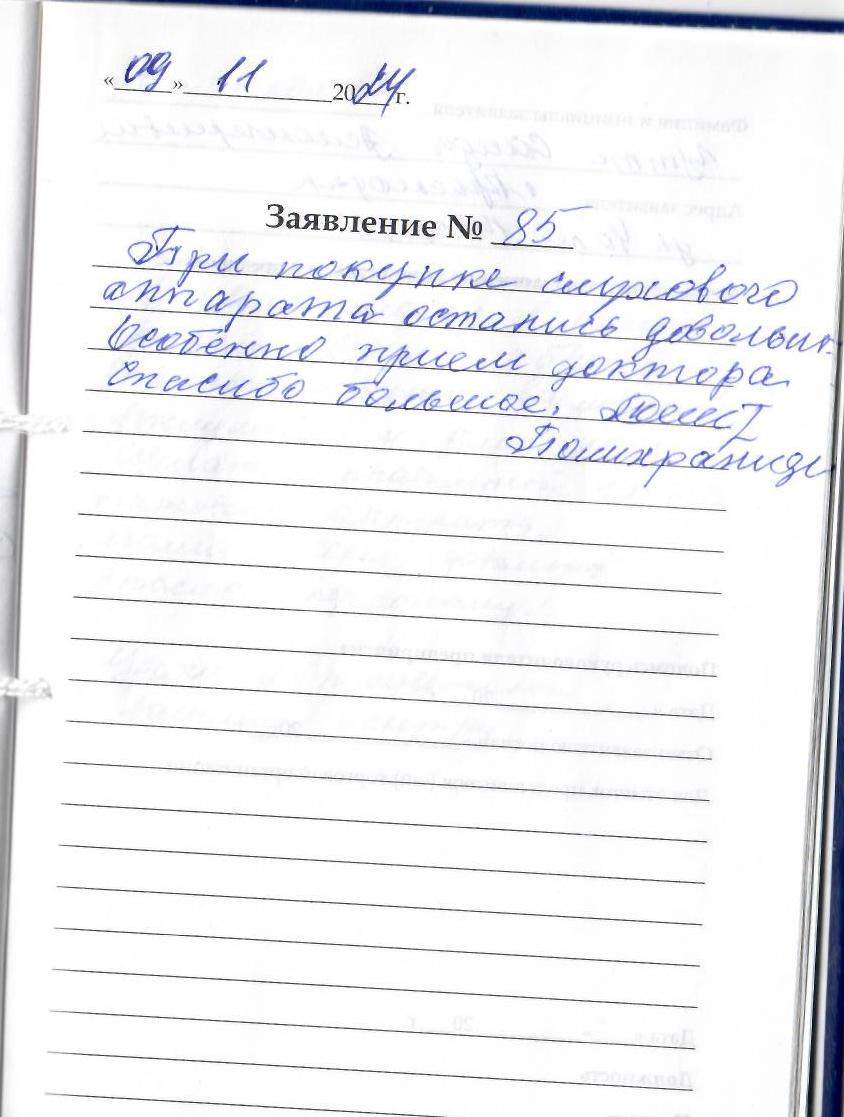 «09» 11 2024 г.
Заявление № 85
При покупке слухового
аппарата остались довольны.
Особенно прием доктора
Спасибо большое.